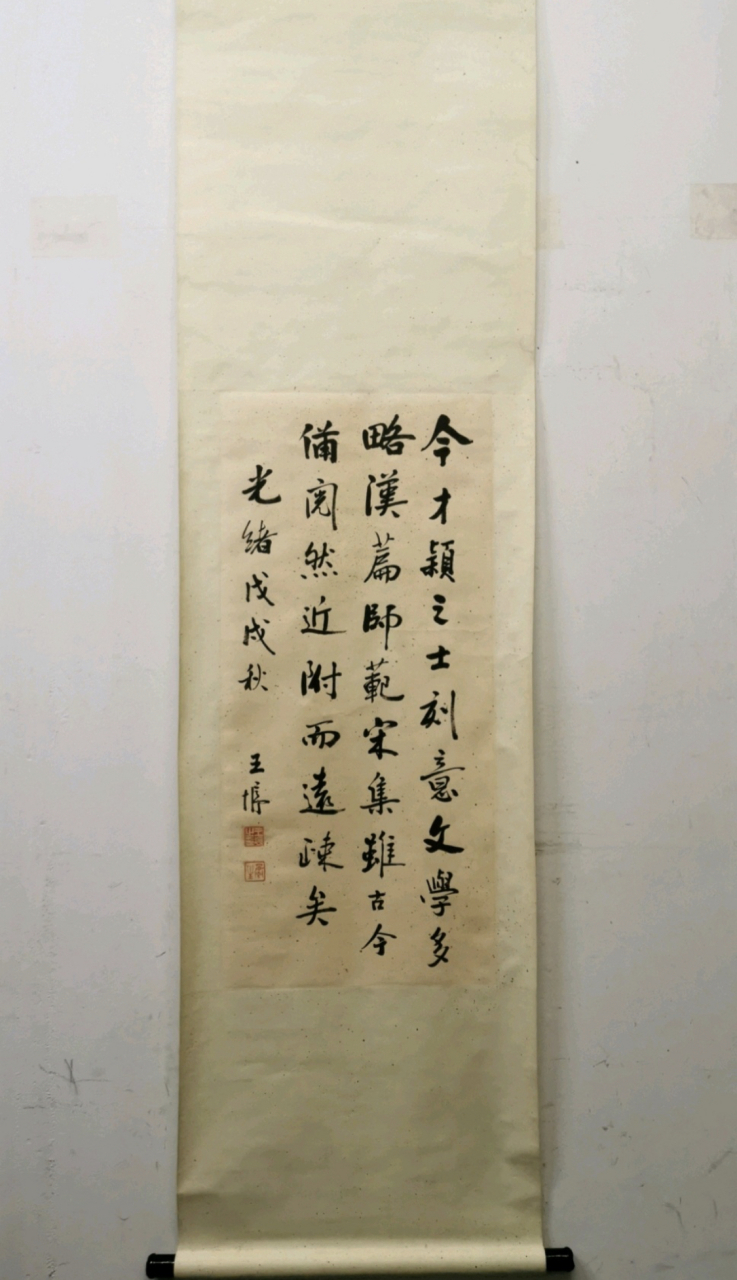 今才穎之士刻意文學多
略漢篇師範宋集雖古今
備閱然近附而遠疎矣
光緒戊戌秋
王